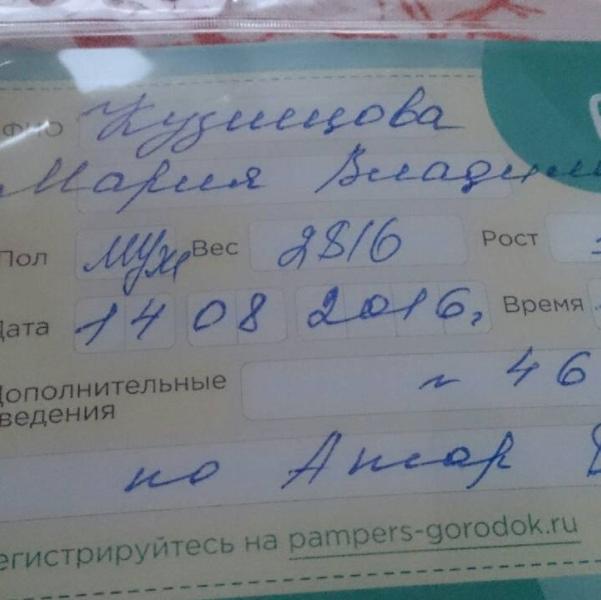 ФИО Кузнецова
Мария Владим
Пол муж Вес 2816 Рост
Дата 14 08 2016, Время
Дополнительные ~ 46
ведения
по Апгар 8
егистрируйтесь на pampers-gorodok.ru